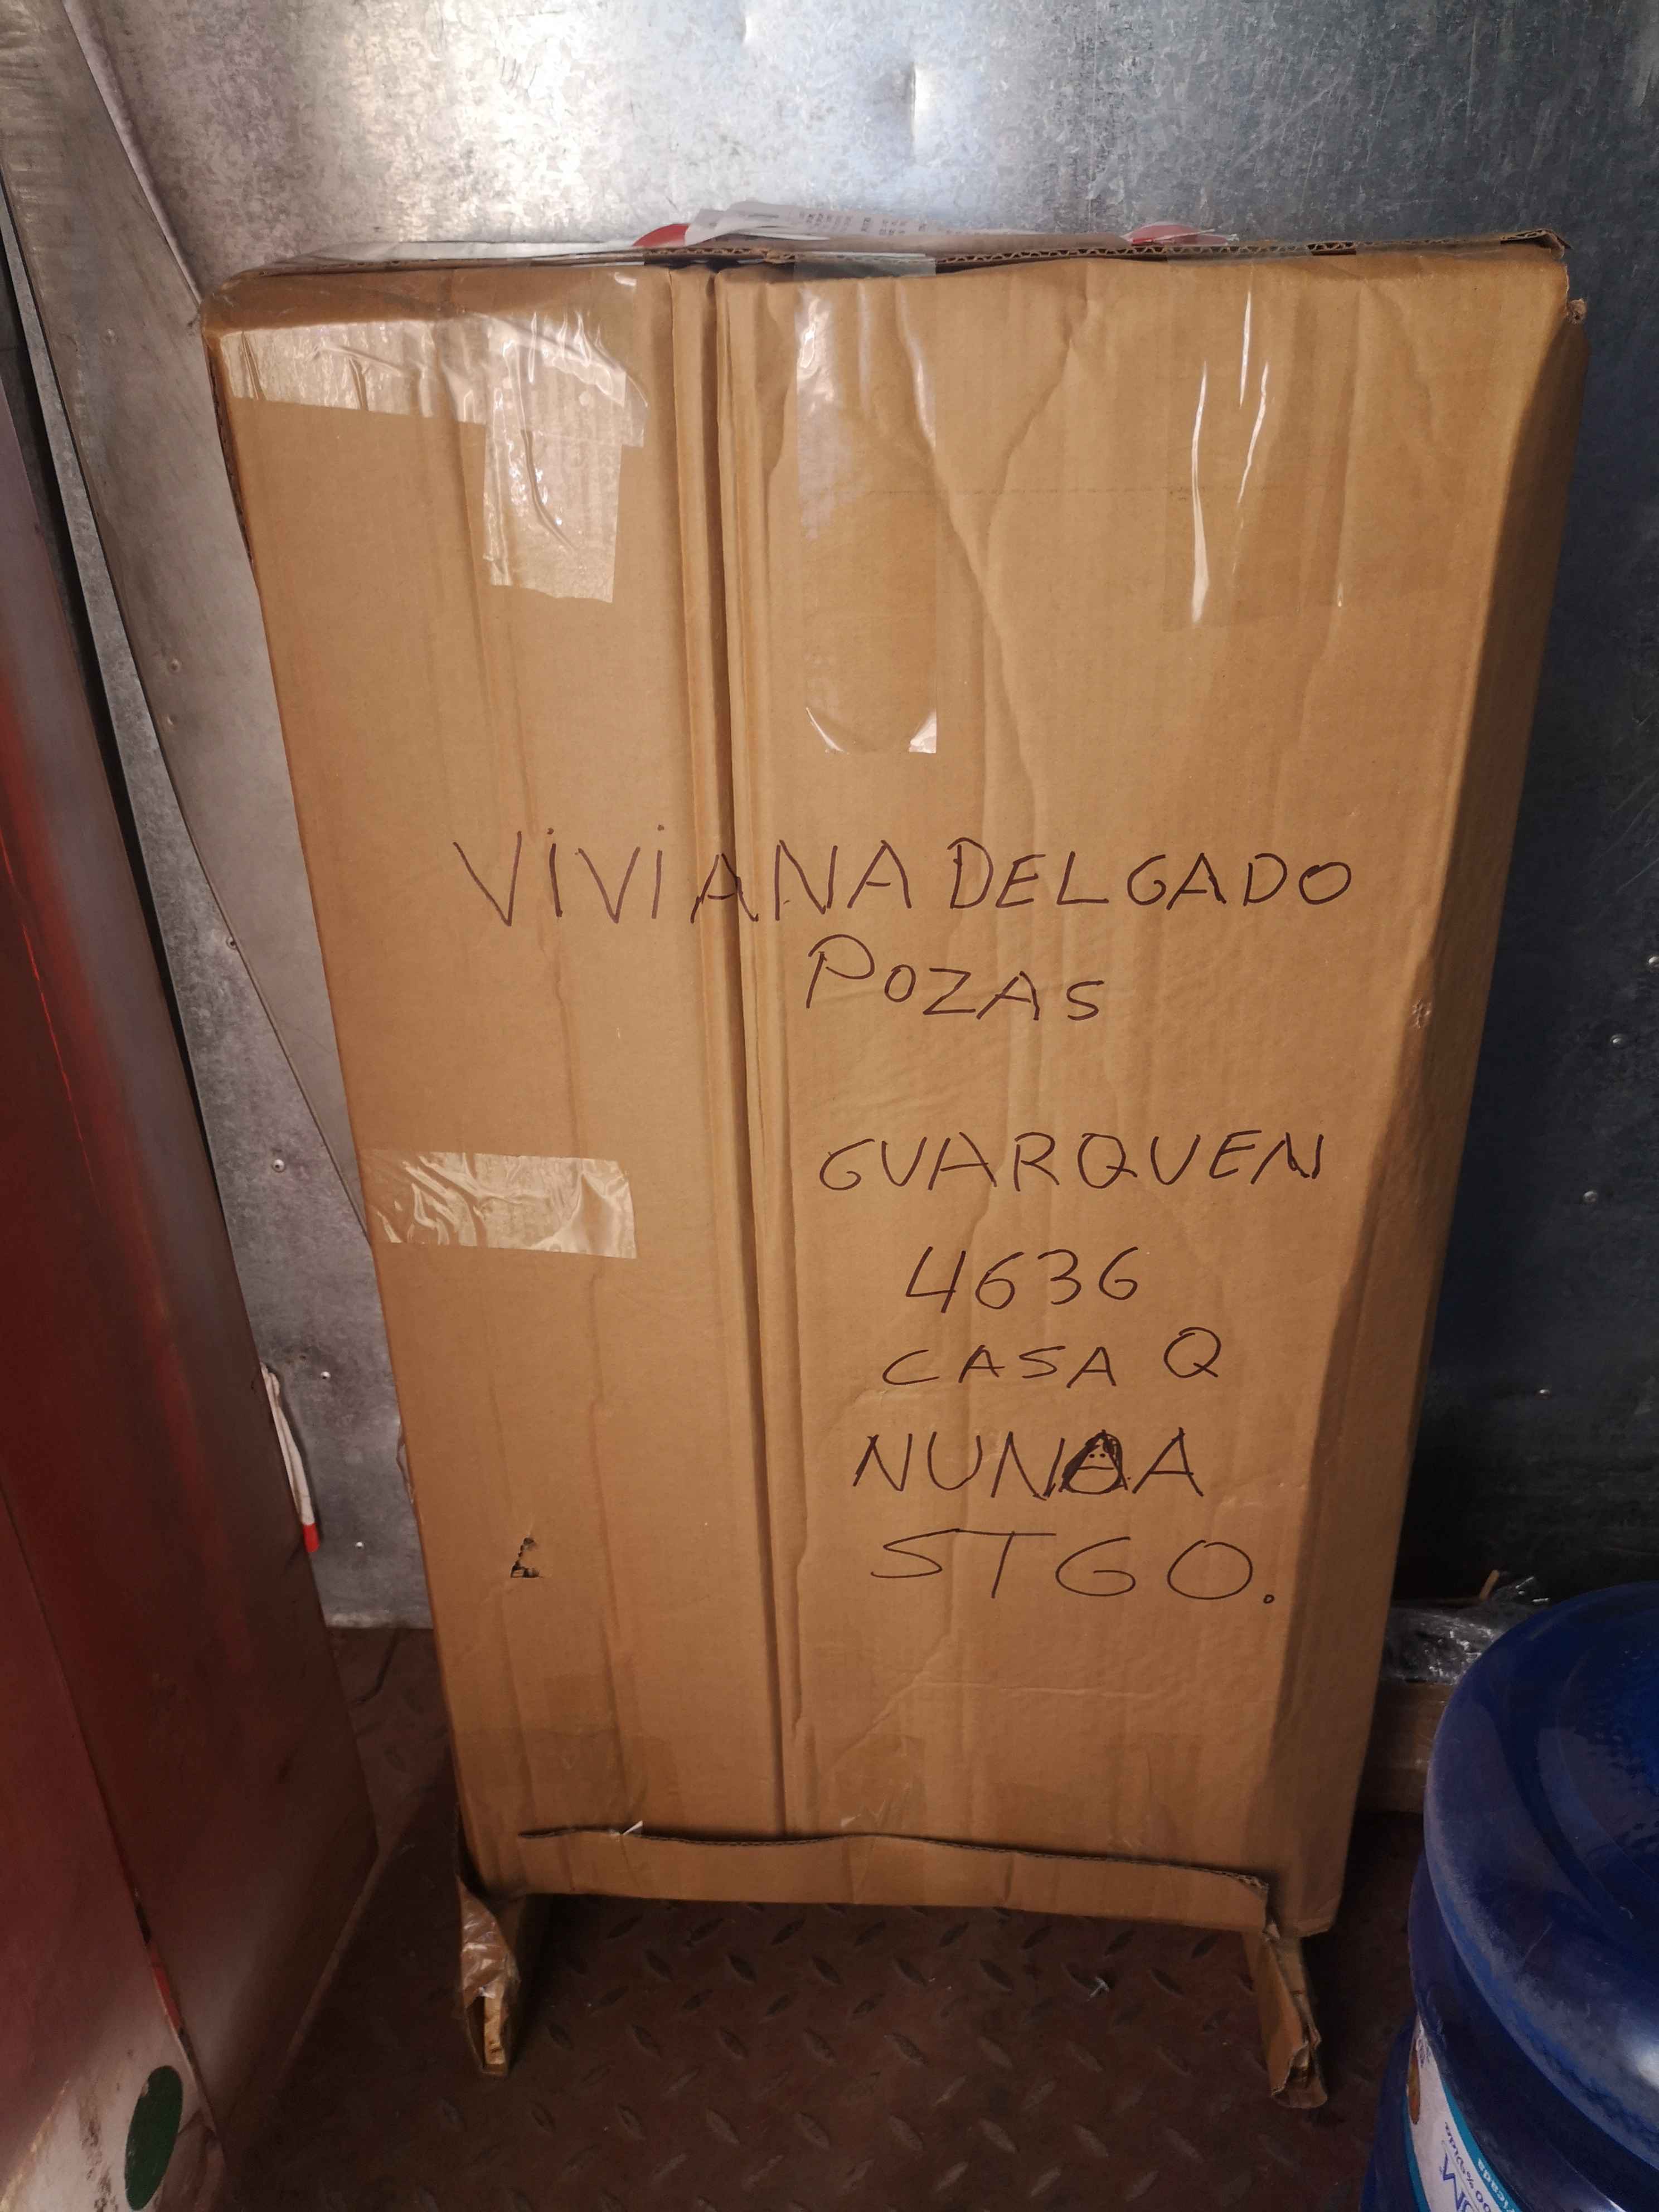 VIVIANA DELGADO
POZAS
GUARQUEN
4636
CASA Q
NUNOA
STGO.